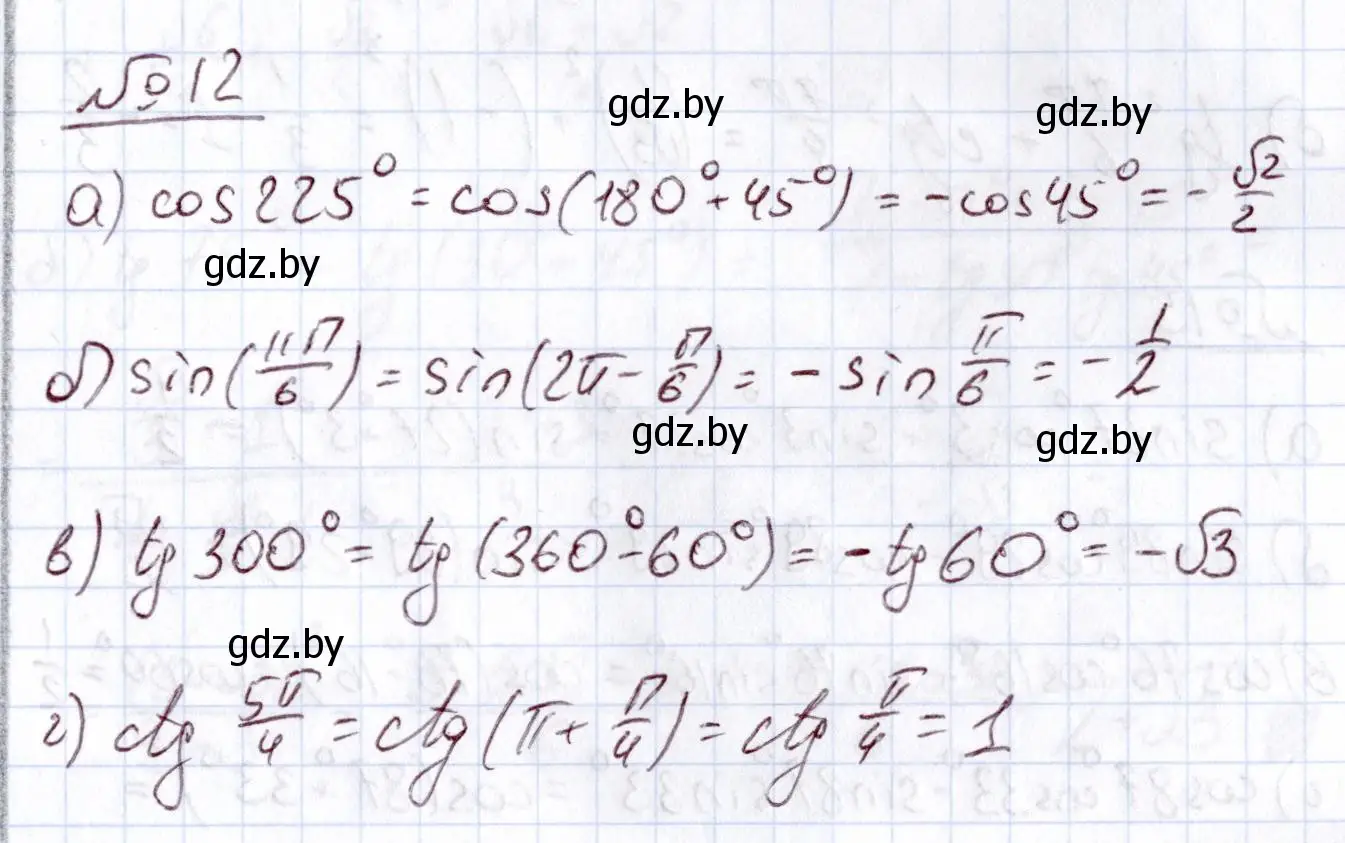 №12
gdz.by gdz.by
а) cos 225° = cos(180° + 45°) = -cos 45° = -√2/2
gdz.by
б) sin(11π/6) = sin(2π - π/6) = -sin π/6 = -1/2
gdz.by gdz.by
в) tg 300° = tg (360° - 60°) = -tg 60° = -√3
gdz.by
г) ctg 5π/4 = ctg(π + π/4) = ctg π/4 = 1